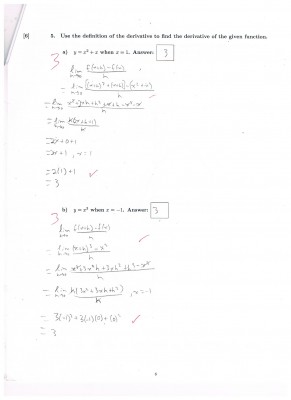 [6] 5. Use the definition of the derivative to find the derivative of the given function.
3 a) y = x² + x when x = 1. Answer: 3
lim h→0 f(x+h)-f(x) / h
= lim h→0 [(x+h)²+(x+h)]-(x²+x) / h
= lim h→0 x²+2xh+h²+x+h-x²-x / h
= lim h→0 h(2x+h+1) / h
=2x+0+1
=2x+1 , x=1
=2(1)+1
=3
3 b) y = x³ when x = −1. Answer: 3
lim h→0 f(x+h)-f(x) / h
= lim h→0 (x+h)³-x³ / h
= lim h→0 x³+3x²h+3xh²+h³-x³ / h
= lim h→0 h(3x²+3xh+h²) / h , x=-1
= 3(-1)²+3(-1)(0)+(0)²
= 3